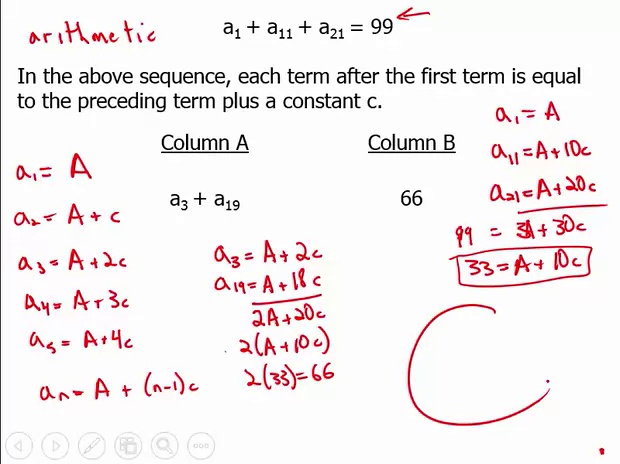 arithmetic
a₁ + a₁₁ + a₂₁ = 99
In the above sequence, each term after the first term is equal
to the preceding term plus a constant c.
Column A
Column B
a₃ + a₁₉
66
a₁ = A
a₂ = A + c
a₃ = A + 2c
a₄ = A + 3c
a₅ = A + 4c
aₙ = A + (n-1)c
a₃ = A + 2c
a₁₉ = A + 18c
2A + 20c
2(A + 10c)
2(33) = 66
a₁ = A
a₁₁ = A + 10c
a₂₁ = A + 20c
99 = 3A + 30c
33 = A + 10c
C